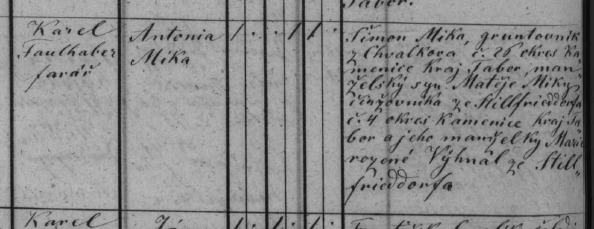 Tábor.
Karel
Faulhaber
farář
Antonia
Mika
Šimon Mika, gruntovník
z Chvalkova č. 26 okres Ka
menice kraj Tabor, man
želský syn Matěje Miky
činžovníka ze Stillfrieddorfa
č. 4 okres Kamenice kraj Ta
bor a jeho manželky Marie
rozené Výhnal ze Still„
frieddorfa
Karel